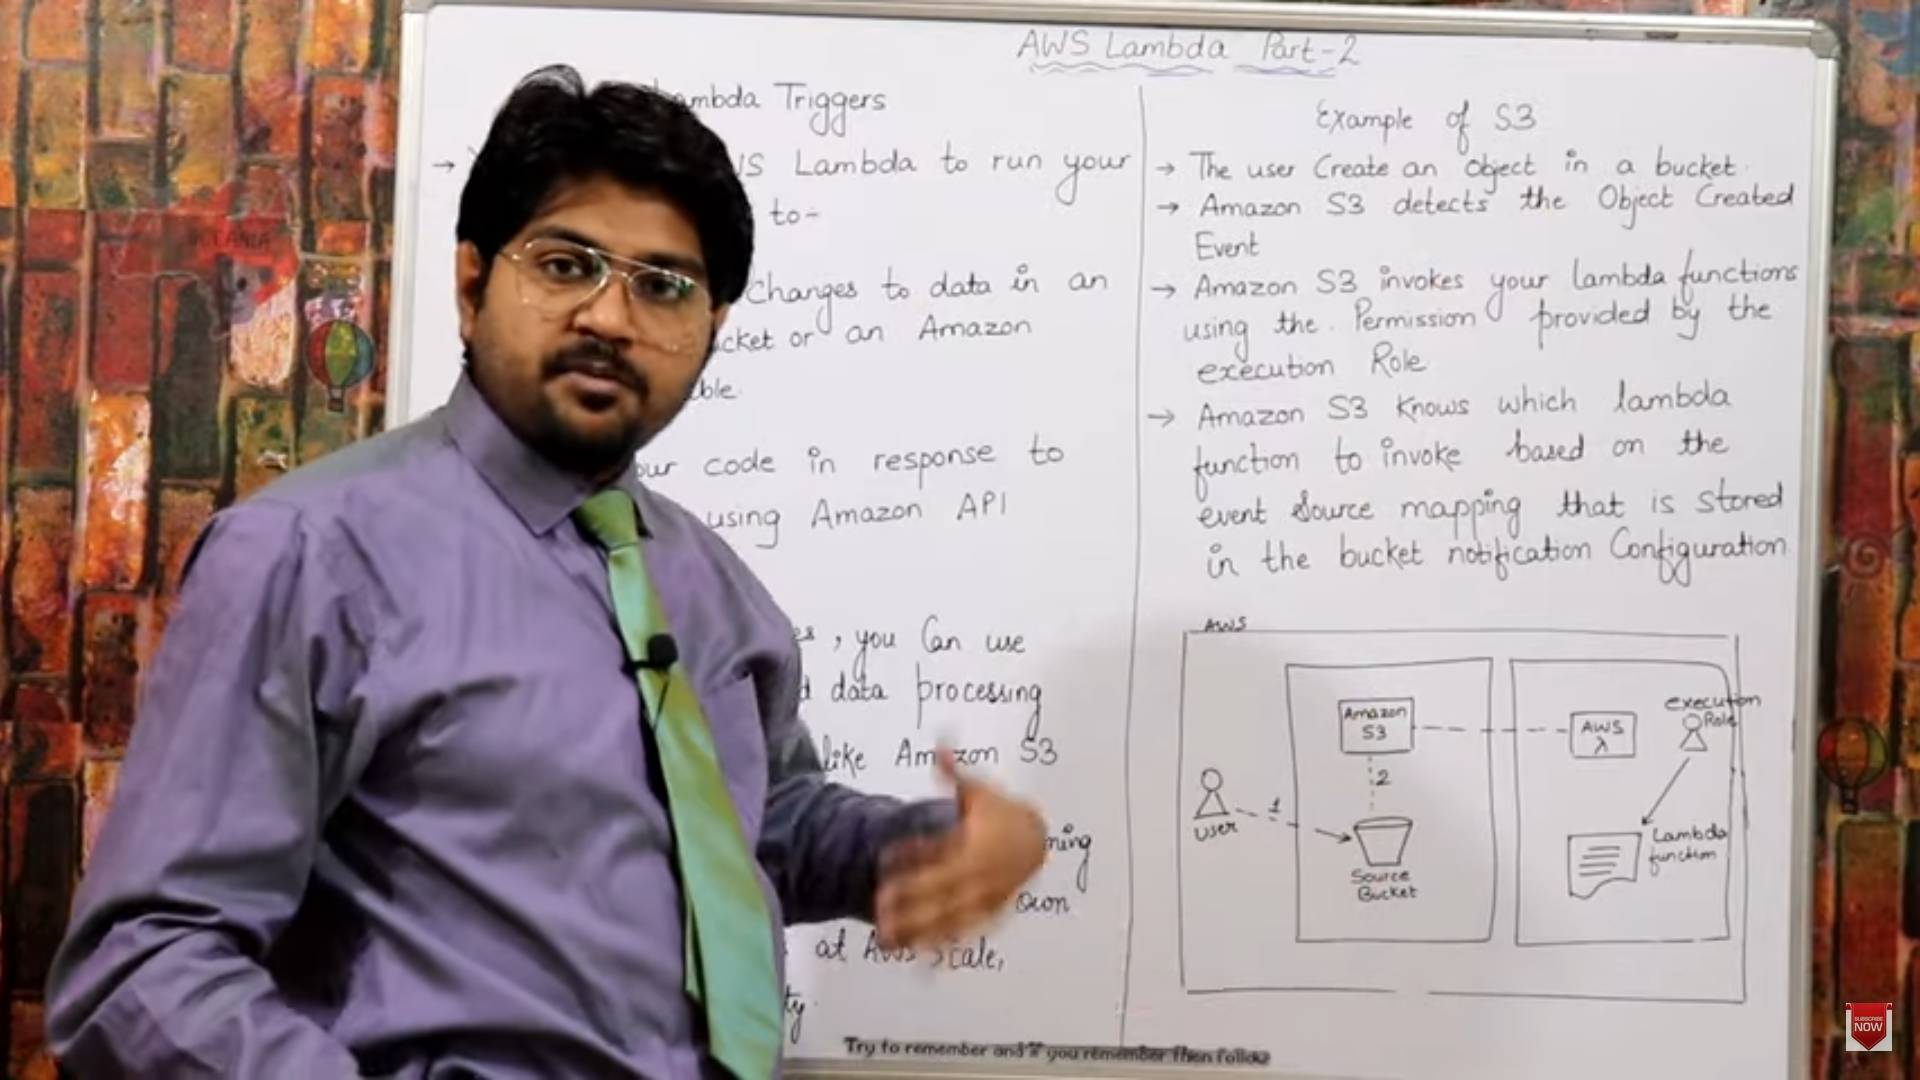 AWS Lambda Part-2
Lambda Triggers
→ AWS Lambda to run your
to-
changes to data in an
or an Amazon
code in response to
using Amazon API
, you Can use
data processing
like Amazon S3
own
at AWS Scale,
Example of S3
→ The user Create an Object in a bucket.
→ Amazon S3 detects the Object Created
Event
→ Amazon S3 invokes your lambda functions
using the. Permission provided by the
execution Role
→ Amazon S3 Knows which lambda
function to invoke based on the
event Source mapping that is stored
in the bucket notification Configuration
AWS
Amazon
S3
AWS
λ
execution
Role
2
1
user
Source
Bucket
Lambda
function
Try to remember and if you remember then follow
SUBSCRIBE
NOW
OCEANIA